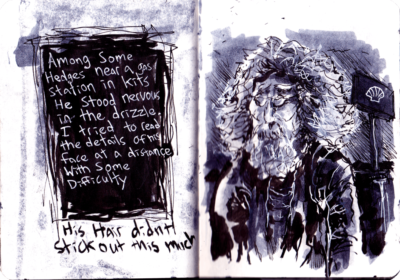 Among Some
Hedges near a gas
station in Kits
He stood nervous
in the drizzle
I tried to read
the details of his
face at a distance
With Some
Difficulty
His Hair didn't
Stick out this much